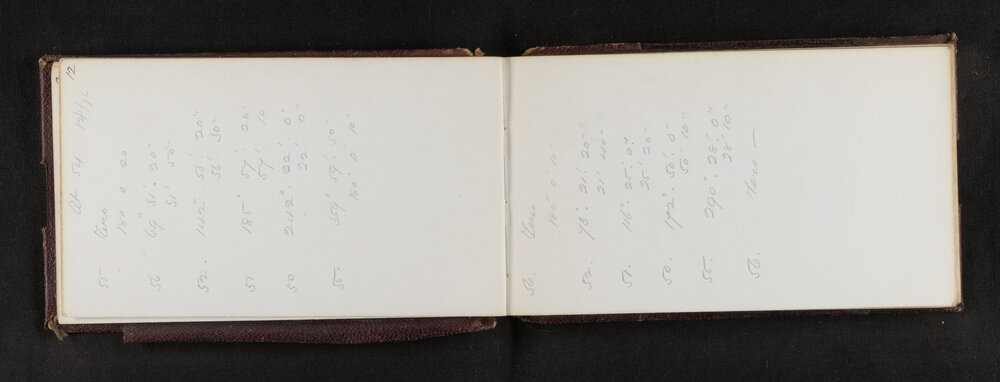 12
At 54 12/1/76
55 Zero
180 0 20
56 69° 31' 20"
31' 50"
52. 142° 53' 20"
53' 30"
51 185° 57' 20"
57' 10
50. 242° 22' 0"
22' 0"
55. 359° 59' 50"
180° 0' 10"
56. Zero.
180° 0' 10"
52. 73° 21' 20"
21' 40"
51. 116° 25' 0"
25' 20"
50. 172° 50' 0"
50' 10"
55. 290° 28' 0"
28' 10"
56. Zero —